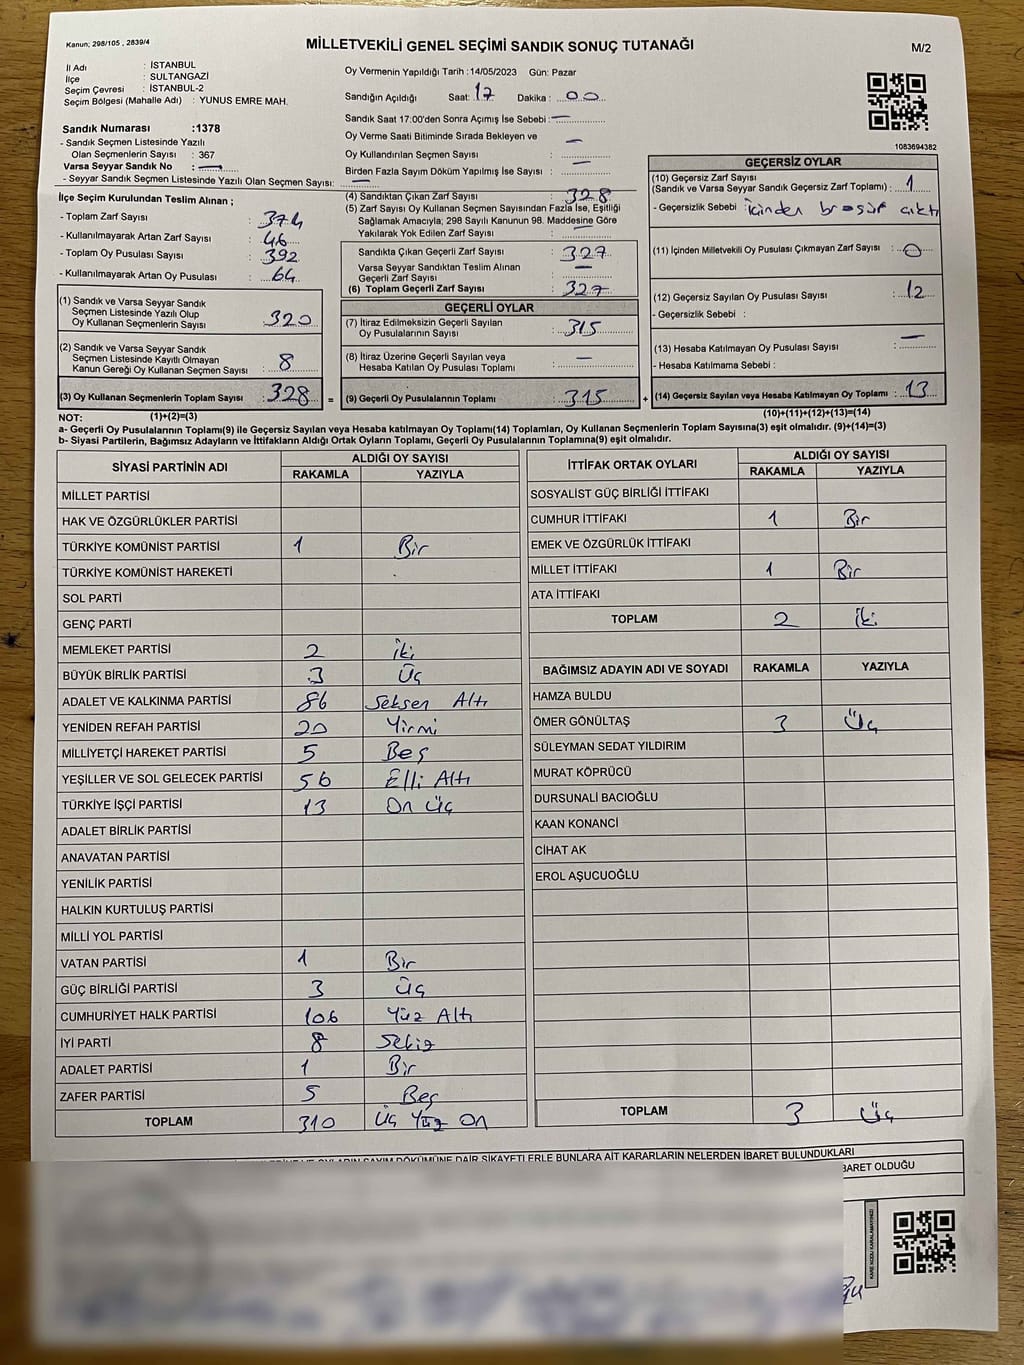 Kanun; 298/105 , 2839/4
MİLLETVEKİLİ GENEL SEÇİMİ SANDIK SONUÇ TUTANAĞI
M/2
İl Adı : İSTANBUL
İlçe : SULTANGAZİ
Seçim Çevresi : İSTANBUL-2
Seçim Bölgesi (Mahalle Adı) : YUNUS EMRE MAH.
Oy Vermenin Yapıldığı Tarih :14/05/2023 Gün: Pazar
Sandığın Açıldığı Saat: 17 Dakika : 00
Sandık Saat 17:00'den Sonra Açımış İse Sebebi : —
Oy Verme Saati Bitiminde Sırada Bekleyen ve
Oy Kullandırılan Seçmen Sayısı : —
Birden Fazla Sayım Döküm Yapılmış İse Sayısı : —
1083694382
Sandık Numarası :1378
- Sandık Seçmen Listesinde Yazılı
Olan Seçmenlerin Sayısı : 367
Varsa Seyyar Sandık No : —
- Seyyar Sandık Seçmen Listesinde Yazılı Olan Seçmen Sayısı: —
İlçe Seçim Kurulundan Teslim Alınan ;
- Toplam Zarf Sayısı : 374
- Kullanılmayarak Artan Zarf Sayısı : 46
- Toplam Oy Pusulası Sayısı : 392
- Kullanılmayarak Artan Oy Pusulası : 64
(1) Sandık ve Varsa Seyyar Sandık
Seçmen Listesinde Yazılı Olup
Oy Kullanan Seçmenlerin Sayısı : 320
(2) Sandık ve Varsa Seyyar Sandık
Seçmen Listesinde Kayıtlı Olmayan
Kanun Gereği Oy Kullanan Seçmen Sayısı : 8
(3) Oy Kullanan Seçmenlerin Toplam Sayısı : 328 =
(4) Sandıktan Çıkan Zarf Sayısı : 328
(5) Zarf Sayısı Oy Kullanan Seçmen Sayısından Fazla İse, Eşitliği
Sağlamak Amacıyla; 298 Sayılı Kanunun 98. Maddesine Göre
Yakılarak Yok Edilen Zarf Sayısı : —
Sandıkta Çıkan Geçerli Zarf Sayısı : 327
Varsa Seyyar Sandıktan Teslim Alınan
Geçerli Zarf Sayısı : —
(6) Toplam Geçerli Zarf Sayısı : 327
GEÇERLİ OYLAR
(7) İtiraz Edilmeksizin Geçerli Sayılan
Oy Pusulalarının Sayısı : 315
(8) İtiraz Üzerine Geçerli Sayılan veya
Hesaba Katılan Oy Pusulası Toplamı : —
(9) Geçerli Oy Pusulalarının Toplamı : 315 +
GEÇERSİZ OYLAR
(10) Geçersiz Zarf Sayısı
(Sandık ve Varsa Seyyar Sandık Geçersiz Zarf Toplamı) : 1
- Geçersizlik Sebebi : içinden broşür çıktı
(11) İçinden Milletvekili Oy Pusulası Çıkmayan Zarf Sayısı : 0
(12) Geçersiz Sayılan Oy Pusulası Sayısı : 12
- Geçersizlik Sebebi :
(13) Hesaba Katılmayan Oy Pusulası Sayısı : —
- Hesaba Katılmama Sebebi :
(14) Geçersiz Sayılan veya Hesaba Katılmayan Oy Toplamı : 13
NOT: (1)+(2)=(3) (10)+(11)+(12)+(13)=(14)
a- Geçerli Oy Pusulalarının Toplamı(9) ile Geçersiz Sayılan veya Hesaba katılmayan Oy Toplamı(14) Toplamları, Oy Kullanan Seçmenlerin Toplam Sayısına(3) eşit olmalıdır. (9)+(14)=(3)
b- Siyasi Partilerin, Bağımsız Adayların ve İttifakların Aldığı Ortak Oyların Toplamı, Geçerli Oy Pusulalarının Toplamına(9) eşit olmalıdır.
SİYASİ PARTİNİN ADI ALDIĞI OY SAYISI
RAKAMLA YAZIYLA
MİLLET PARTİSİ
HAK VE ÖZGÜRLÜKLER PARTİSİ
TÜRKİYE KOMÜNİST PARTİSİ 1 Bir
TÜRKİYE KOMÜNİST HAREKETİ
SOL PARTİ
GENÇ PARTİ
MEMLEKET PARTİSİ 2 İki
BÜYÜK BİRLİK PARTİSİ 3 Üç
ADALET VE KALKINMA PARTİSİ 86 Seksen Altı
YENİDEN REFAH PARTİSİ 20 Yirmi
MİLLİYETÇİ HAREKET PARTİSİ 5 Beş
YEŞİLLER VE SOL GELECEK PARTİSİ 56 Elli Altı
TÜRKİYE İŞÇİ PARTİSİ 13 On Üç
ADALET BİRLİK PARTİSİ
ANAVATAN PARTİSİ
YENİLİK PARTİSİ
HALKIN KURTULUŞ PARTİSİ
MİLLİ YOL PARTİSİ
VATAN PARTİSİ 1 Bir
GÜÇ BİRLİĞİ PARTİSİ 3 Üç
CUMHURİYET HALK PARTİSİ 106 Yüz Altı
İYİ PARTİ 8 Sekiz
ADALET PARTİSİ 1 Bir
ZAFER PARTİSİ 5 Beş
TOPLAM 310 Üç Yüz On
İTTİFAK ORTAK OYLARI ALDIĞI OY SAYISI
RAKAMLA YAZIYLA
SOSYALİST GÜÇ BİRLİĞİ İTTİFAKI
CUMHUR İTTİFAKI 1 Bir
EMEK VE ÖZGÜRLÜK İTTİFAKI
MİLLET İTTİFAKI 1 Bir
ATA İTTİFAKI
TOPLAM 2 İki
BAĞIMSIZ ADAYIN ADI VE SOYADI RAKAMLA YAZIYLA
HAMZA BULDU
ÖMER GÖNÜLTAŞ 3 Üç
SÜLEYMAN SEDAT YILDIRIM
MURAT KÖPRÜCÜ
DURSUNALİ BACIOĞLU
KAAN KONANCİ
CİHAT AK
EROL AŞUCUOĞLU
TOPLAM 3 Üç
OYLARIN SAYIM DÖKÜMÜNE DAİR ŞİKAYETLERLE BUNLARA AİT KARARLARIN NELERDEN İBARET BULUNDUKLARI
BARET OLDUĞU
KARE KODU KARALAMAYINIZ!